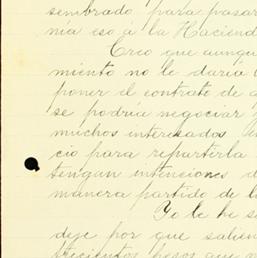 sembrado para pasar
nia eso á la Haciend
Creo que aunqu
miento no le daria
poner el contrato de a
se podria negociar
muchos interesados
cio para repartirla
tengan intenciones d
manera partido de l
Yo le he s
deje por que salien
trecientos pesos que